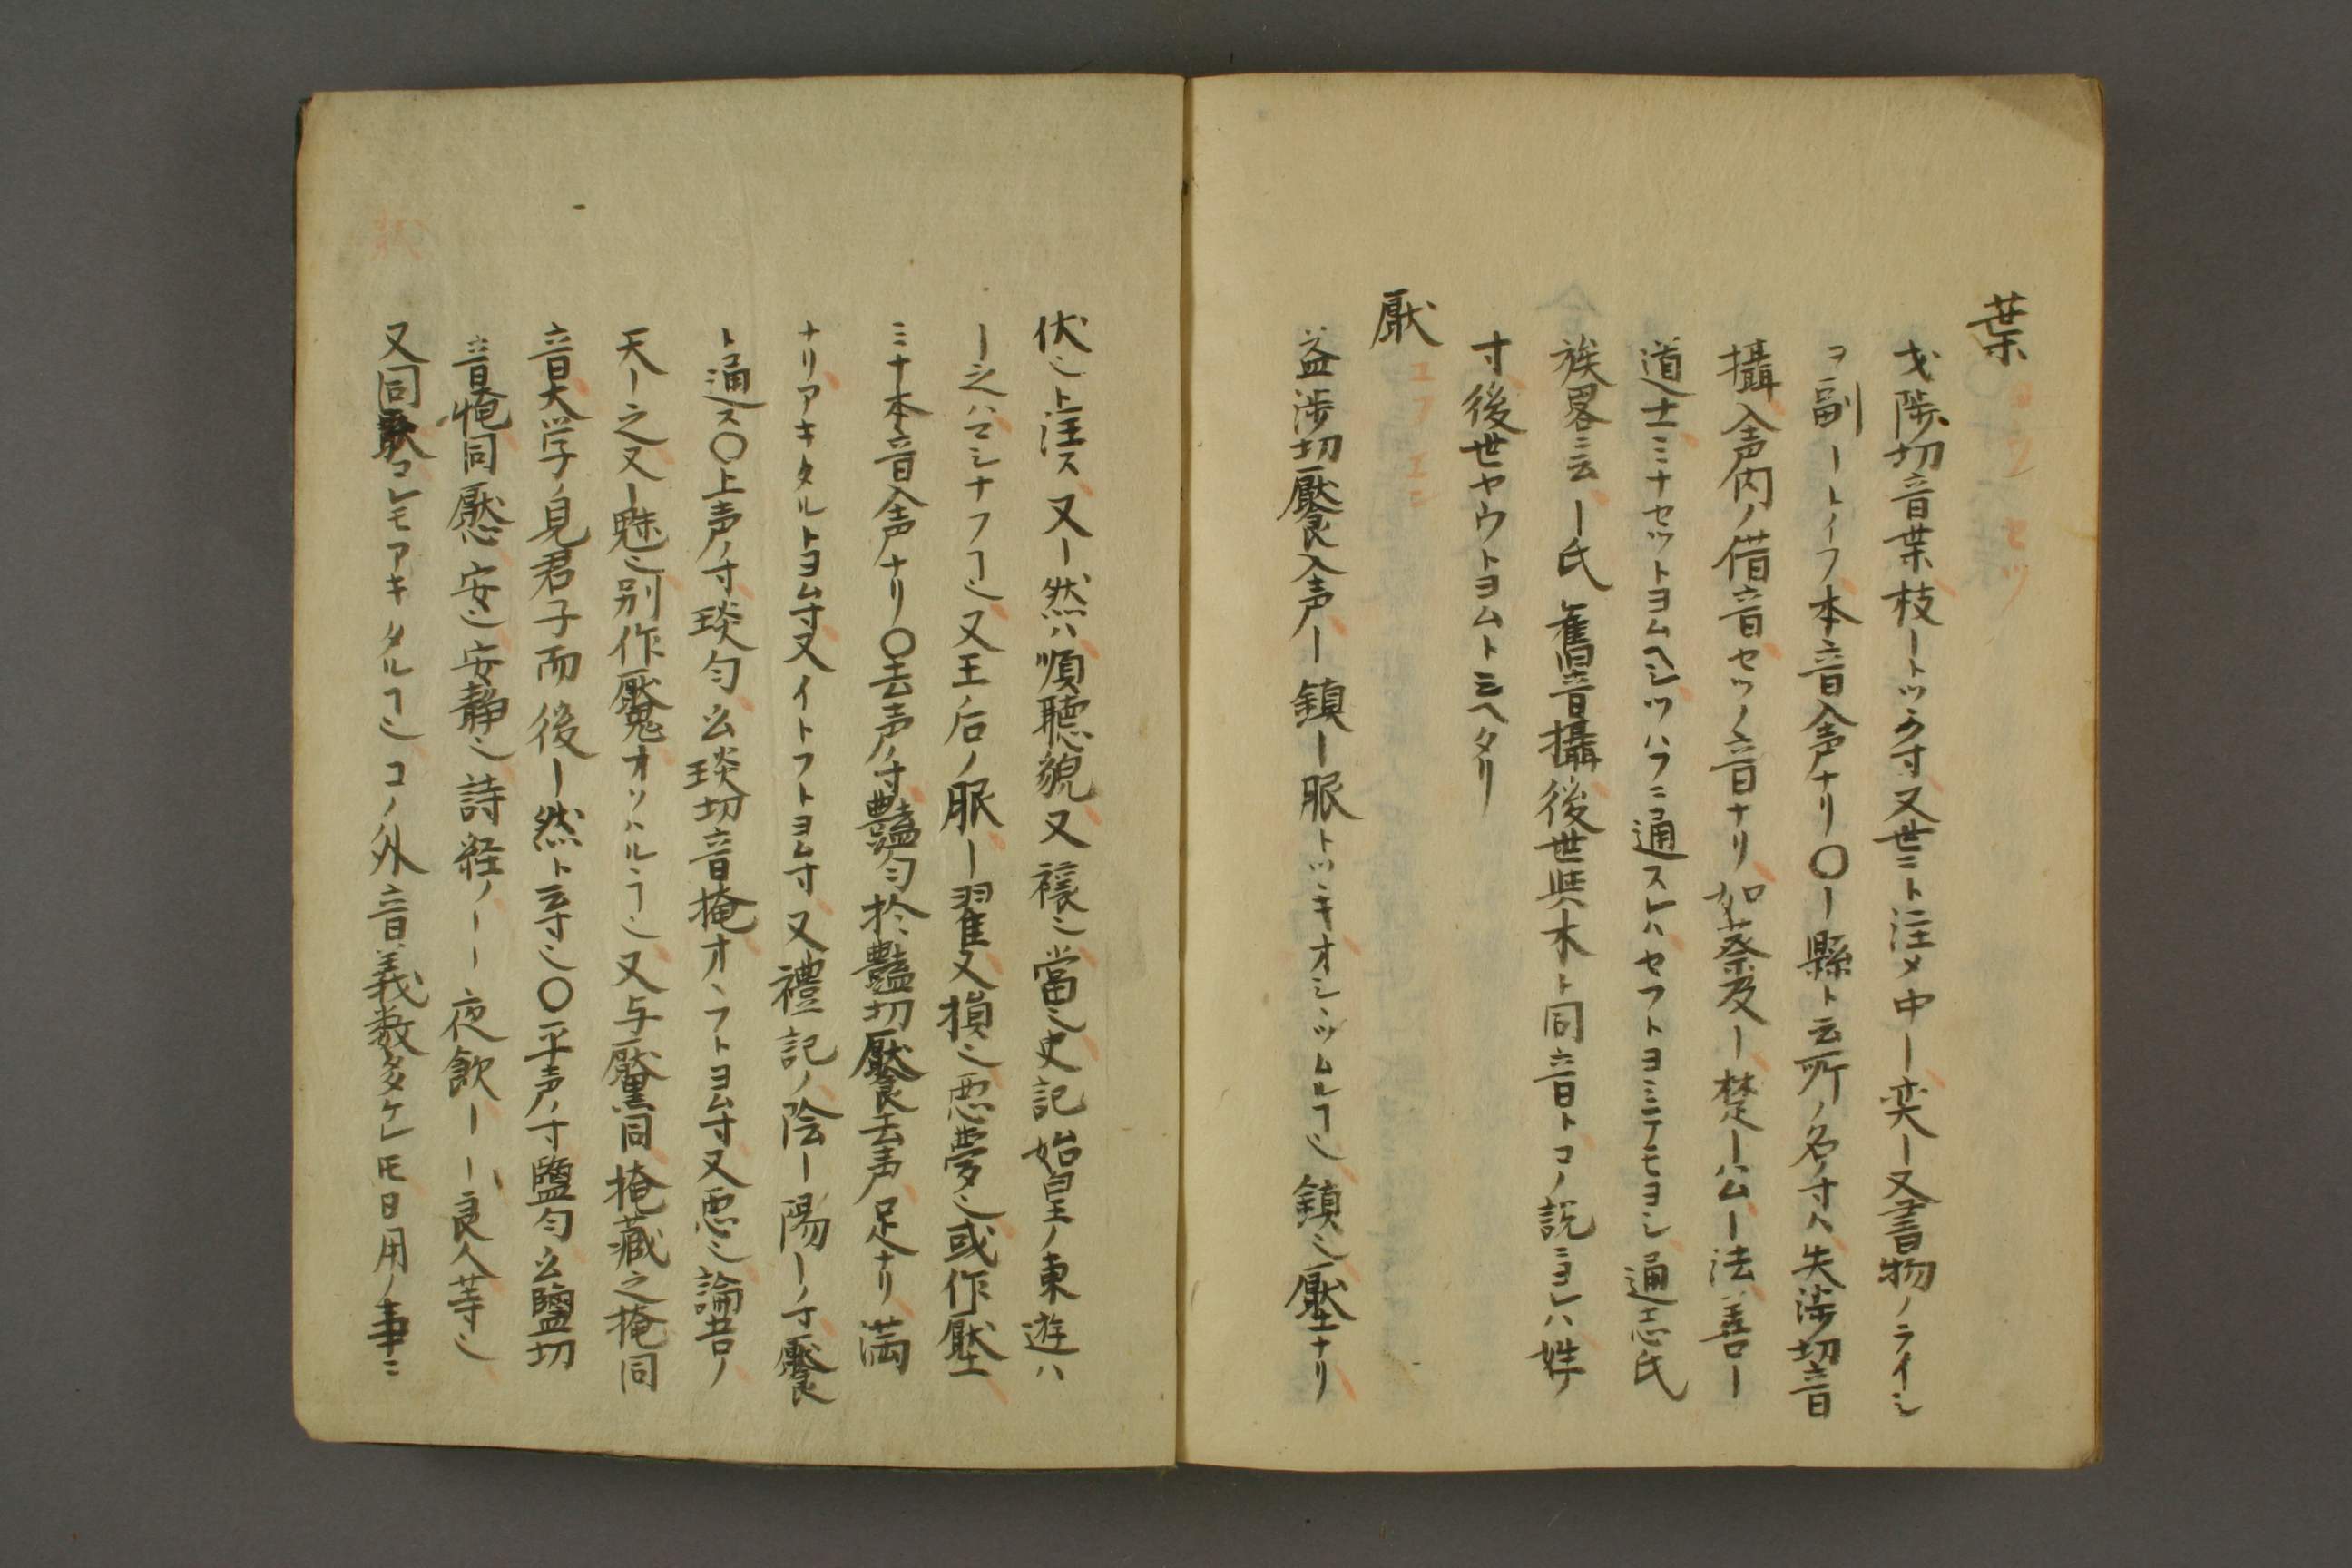 葉
ヨウ セツ
弋渉切音葉枝ートツク寸又世ニト注メ中ー奕ー又書物ノライシ
ヲ副ートイフ本音入声ナリ〇ー縣ト云所ノ名ノ寸ハ失渉切音
攝入声内ノ借音セツノ音ナリ如蔡及ー楚ー公ー法善ー
道士ミナセツトヨムヘシツハフニ通スレハセフトヨミテモヨシ通志氏
族畧ニ云ー氏舊音攝後世與木ト同音トコノ説ニヨレハ姓ノ
寸後世ヤウトヨムトミヘタリ
厭
エフ エン
益渉切饜入声ー鎮ー服トツヽキオシシツムルヿ也鎮也壓ナリ
伏也ト注ス又ー然ハ順聽貌又禳也當也史記始皇ノ東遊ハ
ー之ハマシナフヿ也又王后ノ服ー翟又損也悪夢也或作壓
ミナ本音入声ナリ〇去声ノ寸豔匀於豔切饜去声足ナリ満
ナリアキタルトヨム寸又イトフトヨム寸又禮記ノ陰ー陽ーノ寸饜
ト通ス〇上声ノ寸琰匀幺琰切音掩オヽフトヨム寸又悪也論吾ノ
天ー之又ー魅也別作魘オソハルヽヿ也又与黶同掩藏之掩同
音大学ノ見君子而後ー然ト云寸也〇平声ノ寸鹽匀幺鹽切
音懕同懕安也安静也詩経ノーー夜飲ーー良人等也
又同猒コレモアキタルヿ也コノ外音義数多ケレモ日用ノ事ニ